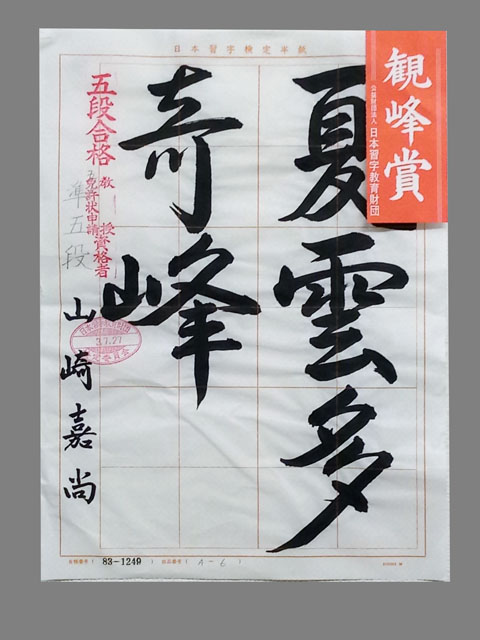 日本習字検定半紙
夏雲多
奇峰
観峰賞
公益財団法人 日本習字教育財団
五段合格
教授資格者
免許状申請
準五段
山崎嘉尚
3.7.27
83-1249
A-6